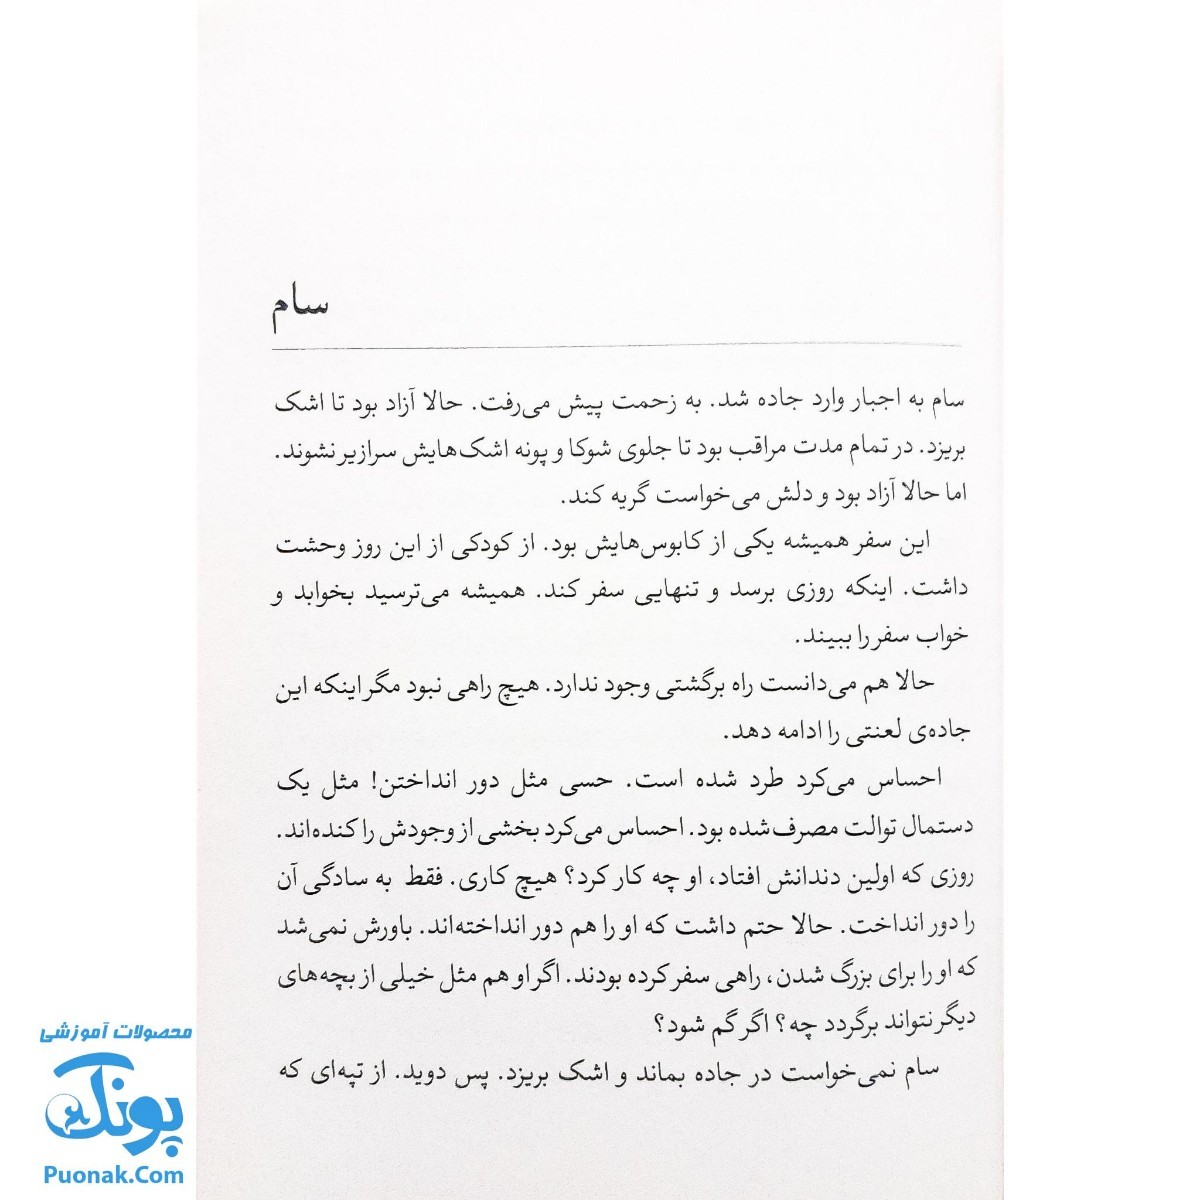 سام
سام به اجبار وارد جاده شد. به زحمت پیش می‌رفت. حالا آزاد بود تا اشک
بریزد. در تمام مدت مراقب بود تا جلوی شوکا و پونه اشک‌هایش سرازیر نشوند.
اما حالا آزاد بود و دلش می‌خواست گریه کند.
این سفر همیشه یکی از کابوس‌هایش بود. از کودکی از این روز وحشت
داشت. اینکه روزی برسد و تنهایی سفر کند. همیشه می‌ترسید بخوابد و
خواب سفر را ببیند.
حالا هم می‌دانست راه برگشتی وجود ندارد. هیچ راهی نبود مگر اینکه این
جاده‌ی لعنتی را ادامه دهد.
احساس می‌کرد طرد شده است. حسی مثل دور انداختن! مثل یک
دستمال توالت مصرف‌شده بود. احساس می‌کرد بخشی از وجودش را کنده‌اند.
روزی که اولین دندانش افتاد، او چه کار کرد؟ هیچ کاری. فقط به سادگی آن
را دور انداخت. حالا حتم داشت که او را هم دور انداخته‌اند. باورش نمی‌شد
که او را برای بزرگ شدن، راهی سفر کرده بودند. اگر او هم مثل خیلی از بچه‌های
دیگر نتواند برگردد چه؟ اگر گم شود؟
سام نمی‌خواست در جاده بماند و اشک بریزد. پس دوید. از تپه‌ای که
محصولات آموزشی
پونک
Puonak.Com